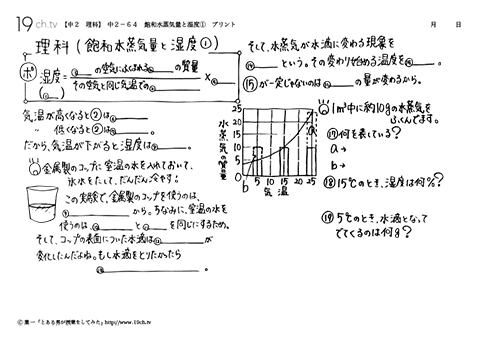 19 ch.tv 【中2 理科】 中2-64 飽和水蒸気量と湿度① プリント 月 日
理科(飽和水蒸気量と湿度①)
ポ 湿度= の空気にふくまれる の質量
その空気と同じ気温での ×
気温が高くなると②は 。
〃 低くなると②は 。
だから、気温が下がると湿度は 。
金属製のコップに室温の水を入れておいて、
氷水をたして、だんだん冷やす!
この実験で、金属製のコップを使うのは、
から。ちなみに、室温の水を
使うのは と を同じにするため。
そして、コップの表面についた水滴は が
変化したんだよね。もし水滴をとりたかったら
。
そして、水蒸気が水滴に変わる現象を
という。その変わり始める温度を 。
⑮が一定じゃないのは の量が変わるから。
水蒸気の質量
25
20
15
10
5
0
5 10 15 20 25
気温
a
b
1m³中に約10gの水蒸気を
ふくんでます。
⑰何を表している?
a→
b→
⑱15℃のとき、湿度は何%?
⑲5℃のとき、水滴となって
でてくるのは何g?
© 葉一「とある男が授業をしてみた」http://www.19ch.tv